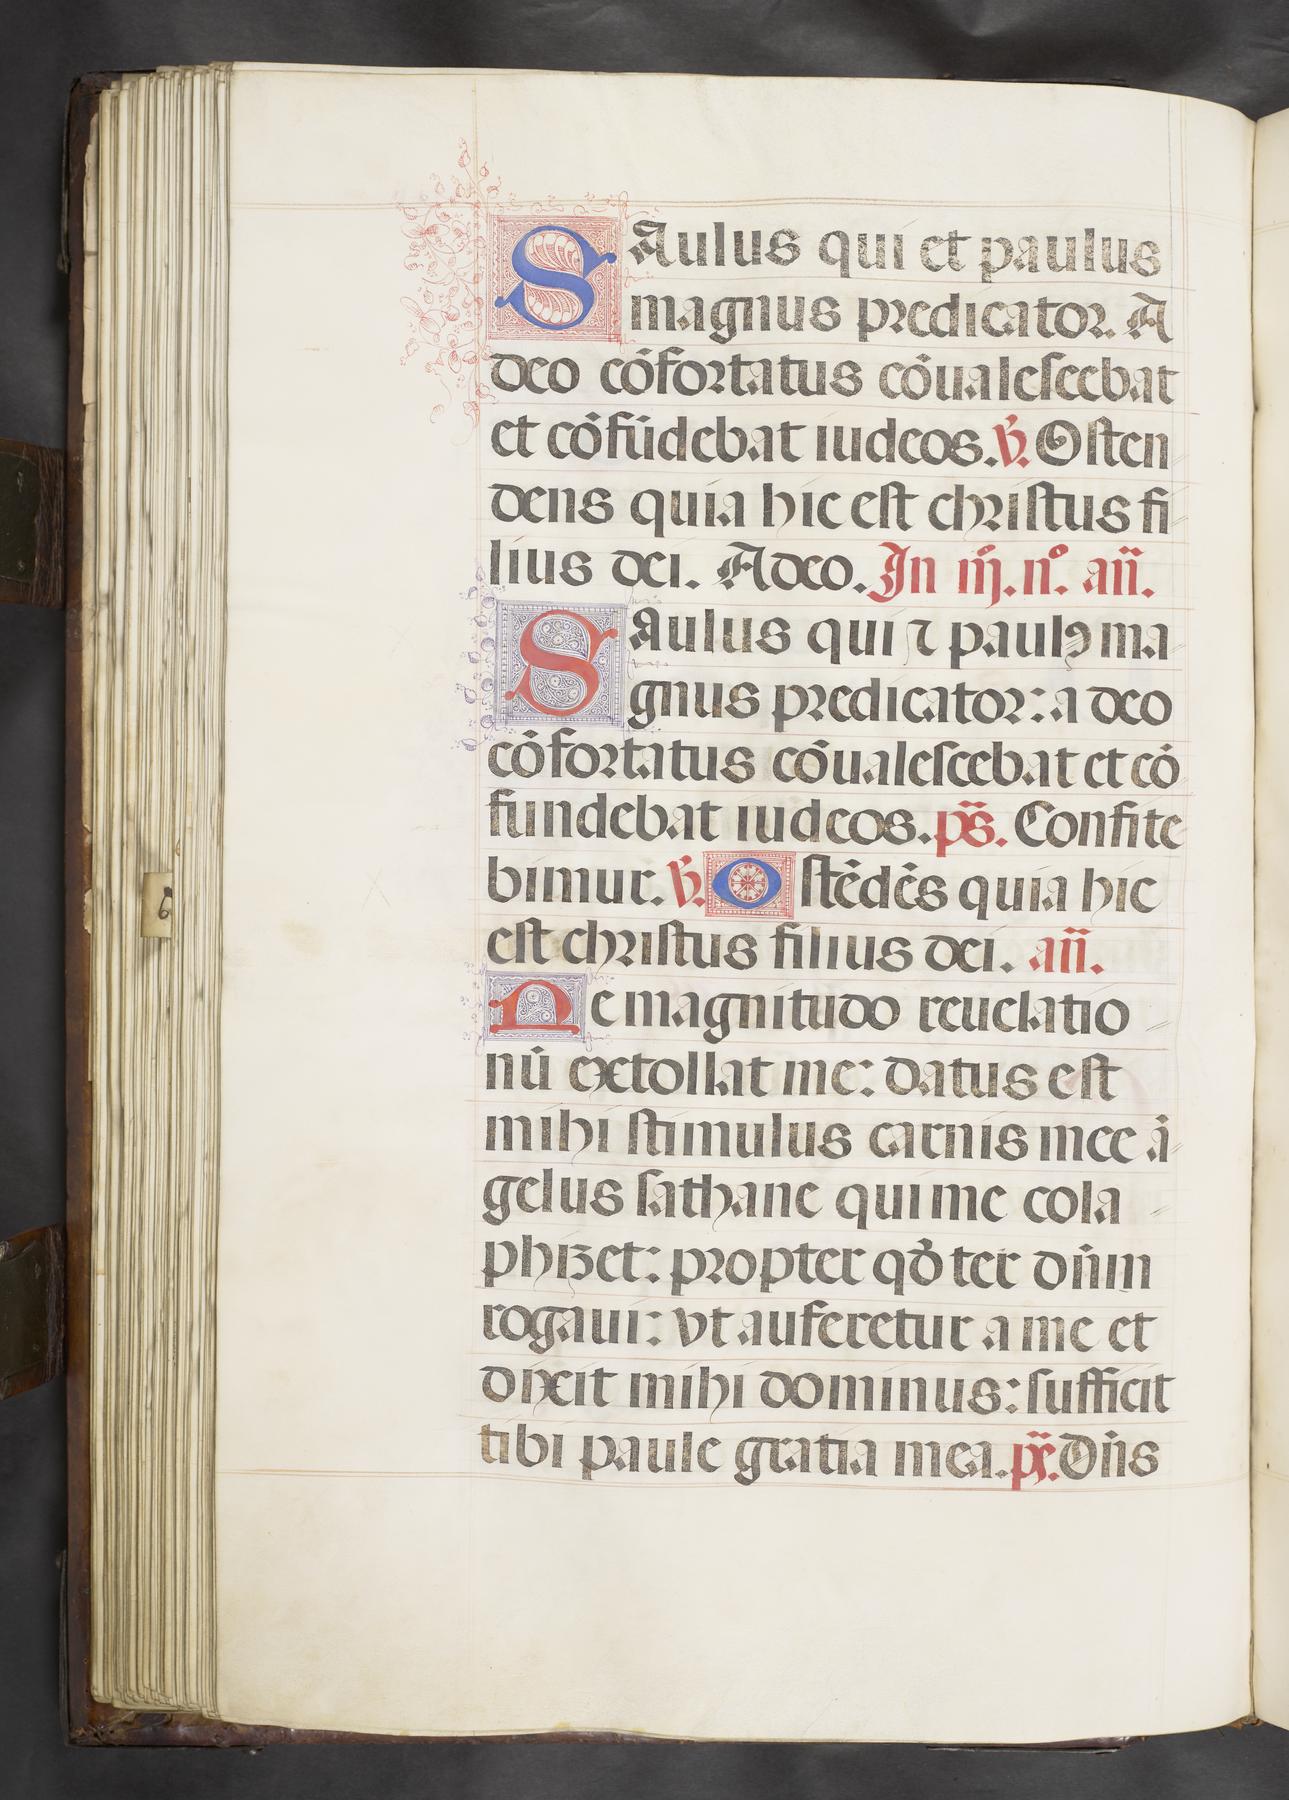 SAulus qui et paulus
magnus predicator. A
deo cōfortatus cōualescebat
et cōfūdebat iudeos. ꝟ. Osten
dens quia hic est christus fi
lius dei. Adeo. In iij. nº. añ.
SAulus qui ⁊ paulꝰ ma
gnus predicator: a deo
cōfortatus cōualescebat et cō
fundebat iudeos. pš. Confite
bimur. ꝟ. Ostēdēs quia hic
est christus filius dei. añ.
Ne magnitudo reuelatio
nū extollat me: datus est
mihi stimulus carnis mee ā
gelus sathane qui me cola
phizet: propter qð ter dñm
rogaui: vt auferetur a me et
dixit mihi dominus: sufficit
tibi paule gratia mea. px̄. Dñs
6